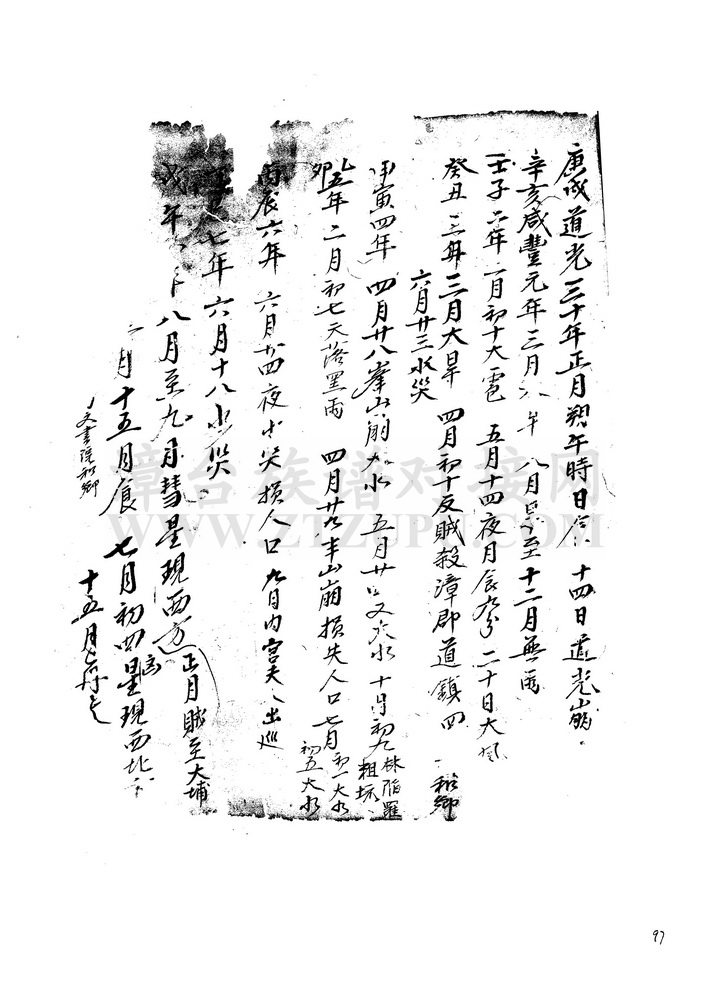 庚戌道光三十年正月朔午時日食 十四日道光崩
辛亥咸豐元年三月 八月旱至十二月無雨
壬子二年 月初十大雹 五月十四夜月食九分 二十日大風
癸丑三年三月大旱 四月初十反賊殺漳郡道鎮 四 和鄉
六月廿三水災
甲寅四年 四月廿八 山崩大水 五月廿 又大水 十月初九
乙卯五年二月初七天落黑雨 四月廿 半山崩損失人口 七月初一大水
初五大水
丙辰六年 六月廿四夜水災損人口 九月內宮夫人出巡
七年六月十八水災
戊午 年八月至九月彗星現西方 正月賊至大埔
月十五月食 七月初四星現西北
文書院和鄉
十五月
章台族譜对接网
WWW.ZTZUPU.COM
97